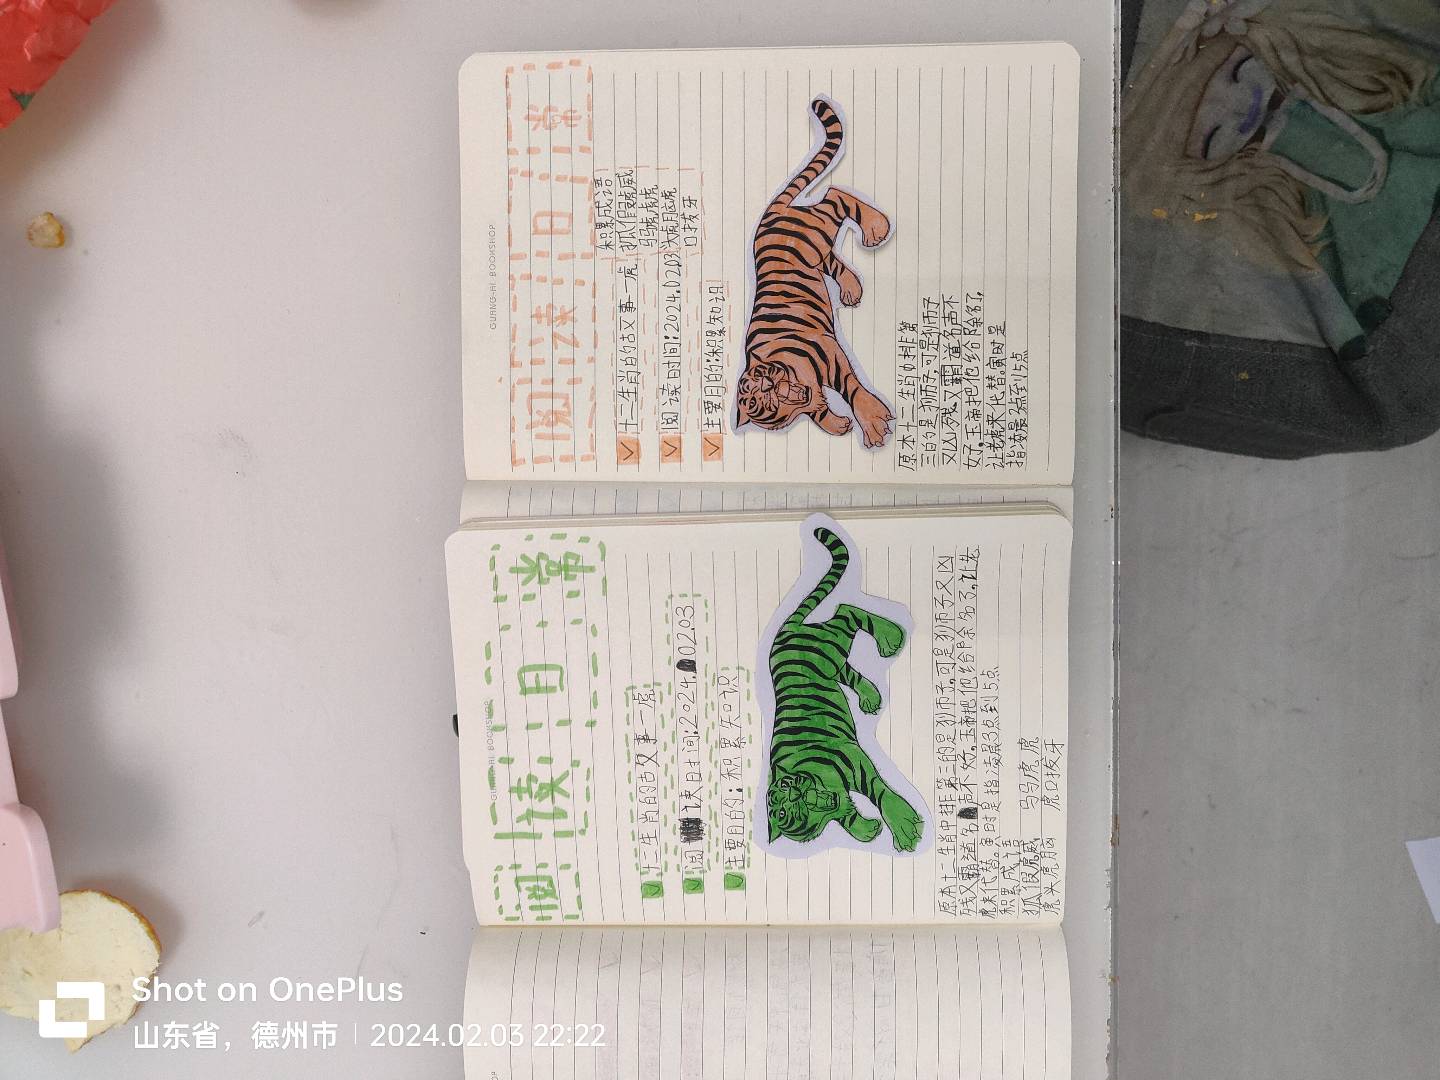 GUANG-AI BOOKSHOP
阅读日常
十二生肖的故事—虎
阅读时间:2024.02.03
主要目的:积累知识
积累成语
狐假虎威
马马虎虎
虎头虎脑
虎口拔牙
原本十二生肖中排第
三的是狮子,可是狮子
又凶残又霸道名声不
好,玉帝把他给除名了,
让老虎来代替。寅时是
指凌晨3点到5点
GUANG-AI BOOKSHOP
阅读日常
十二生肖的故事—虎
阅读时间:2024.02.03
主要目的:积累知识
原本十二生肖中排第三的是狮子,可是狮子又凶
残又霸道名声不好,玉帝把他给除名了,让老
虎来代替。寅时是指凌晨3点到5点
积累成语
狐假虎威 马马虎虎
虎头虎脑 虎口拔牙
Shot on OnePlus
山东省，德州市 | 2024.02.03 22:22